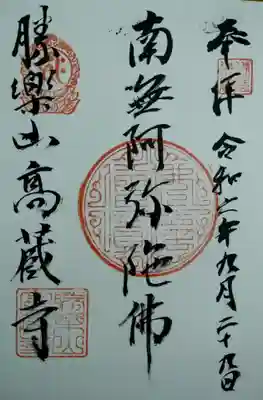 奉拝 令和二年九月二十九日
南無阿弥陀佛
勝樂山高蔵寺